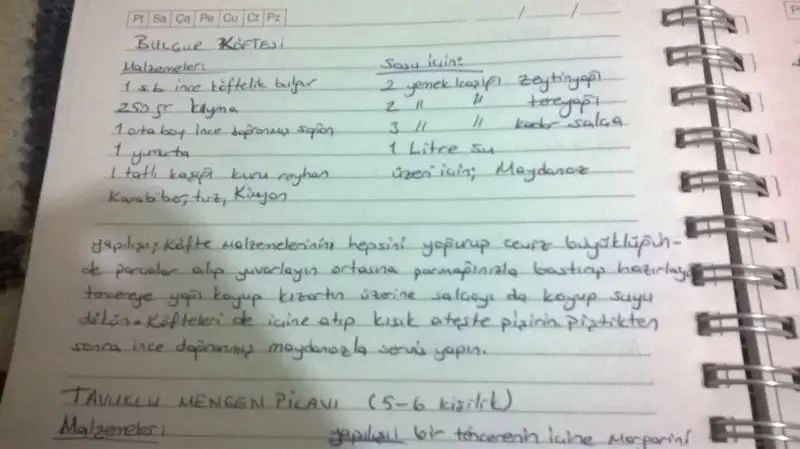 Pt Sa Ça Pe Cu Ct Pz
BULGUR KÖFTESİ
Malzemeleri
1 s.b ince köftelik bulgur
250 gr kıyma
1 orta boy ince doğranmış soğan
1 yumurta
1 tatlı kaşığı kuru reyhan
Karabiber, tuz, Kimyon
Sosu için:
2 yemek kaşığı zeytinyağı
2 " " tereyağı
3 " " kadar salça
1 Litre su
üzeri için; Maydanoz
yapılışı; Köfte malzemelerinin hepsini yoğurup ceviz büyüklüğün-
de parçalar alıp yuvarlayın ortasına parmağınızla bastırıp hazırlayı
tencereye yağı koyup kızartın üzerine salçayı da koyup suyu
dökün. Köfteleri de içine atıp kısık ateşte pişirin. Piştikten
sonra ince doğranmış maydanozla servis yapın.
TAVUKLU MENGEN PİLAVI (5-6 kişilik)
Malzemeler: yapılışı bir tencerenin içine Margarini